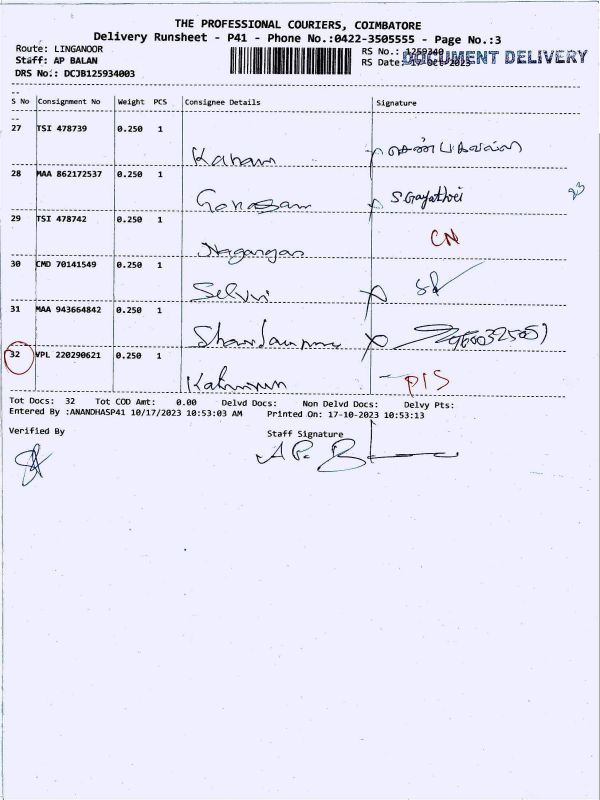 THE PROFESSIONAL COURIERS, COIMBATORE
Delivery Runsheet - P41 - Phone No.:0422-3505555 - Page No.:3
Route: LINGANOOR
Staff: AP BALAN
DRS No.: DCJB125934003
RS No.: 1259340
RS Date: 17-Oct-2023
DOCUMENT DELIVERY
S No Consignment No Weight PCS Consignee Details Signature
27 TSI 478739 0.250 1
28 MAA 862172537 0.250 1
S Gayathri
23
29 TSI 478742 0.250 1
CN
30 CMD 70141549 0.250 1
Selvi
31 MAA 943664842 0.250 1
32 VPL 220290621 0.250 1
Tot Docs: 32 Tot COD Amt: 0.00 Delvd Docs: Non Delvd Docs: Delvy Pts:
Entered By :ANANDHASP41 10/17/2023 10:53:03 AM Printed On: 17-10-2023 10:53:13
Verified By Staff Signature